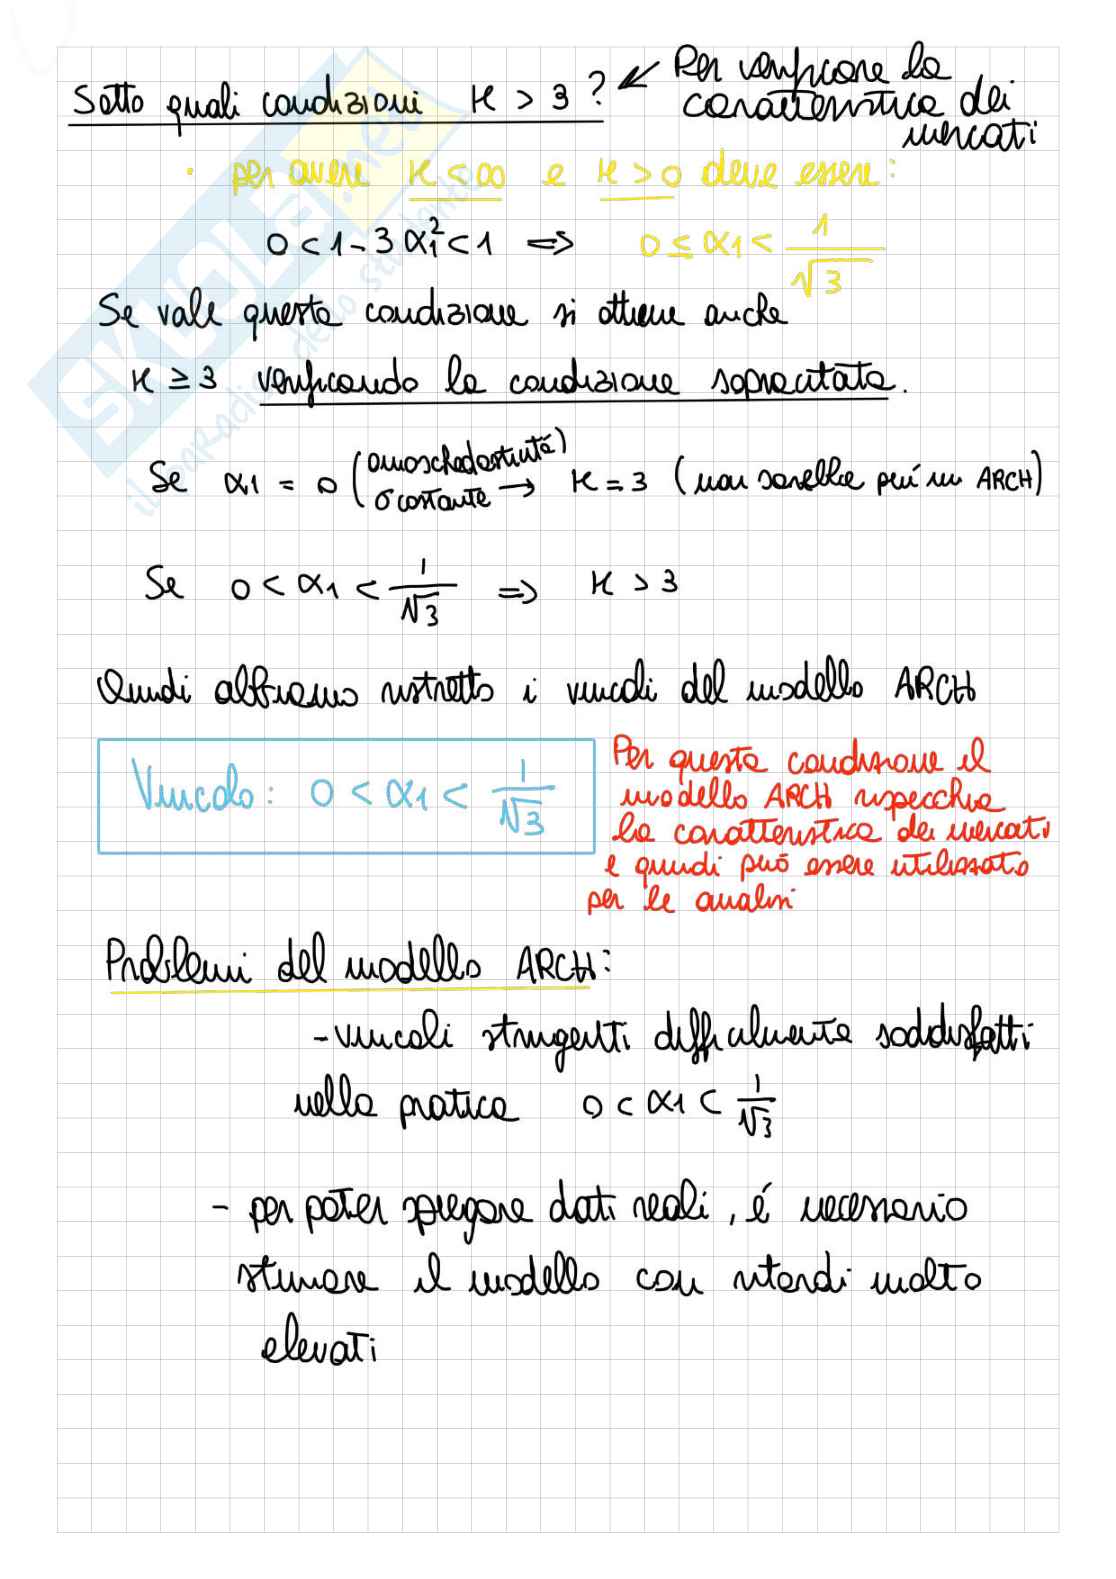 Sotto quali condizioni K > 3 ? ↙ Per verificare la
caratteristica dei
mercati
· per avere K < ∞ e K > 0 deve essere:
0 < 1 - 3 α1² < 1 ⇒ 0 ≤ α1 < 1/√3
Se vale questa condizione si ottiene anche
K ≥ 3 verificando la condizione sopracitata.
Se α1 = 0 (omoschedasticità) σ costante → K = 3 (non sarebbe più un ARCH)
Se 0 < α1 < 1/√3 ⇒ K > 3
Quindi abbiamo ristretto i vincoli del modello ARCH
Vincolo: 0 < α1 < 1/√3
Per questa condizione il
modello ARCH rispecchia
la caratteristica dei mercati
e quindi può essere utilizzato
per le analisi
Problemi del modello ARCH:
- vincoli stringenti difficilmente soddisfatti
nella pratica 0 < α1 < 1/√3
- per poter spiegare dati reali, é necessario
stimare il modello con ritardi molto
elevati
SKUOLA.net
il paradiso dello studente